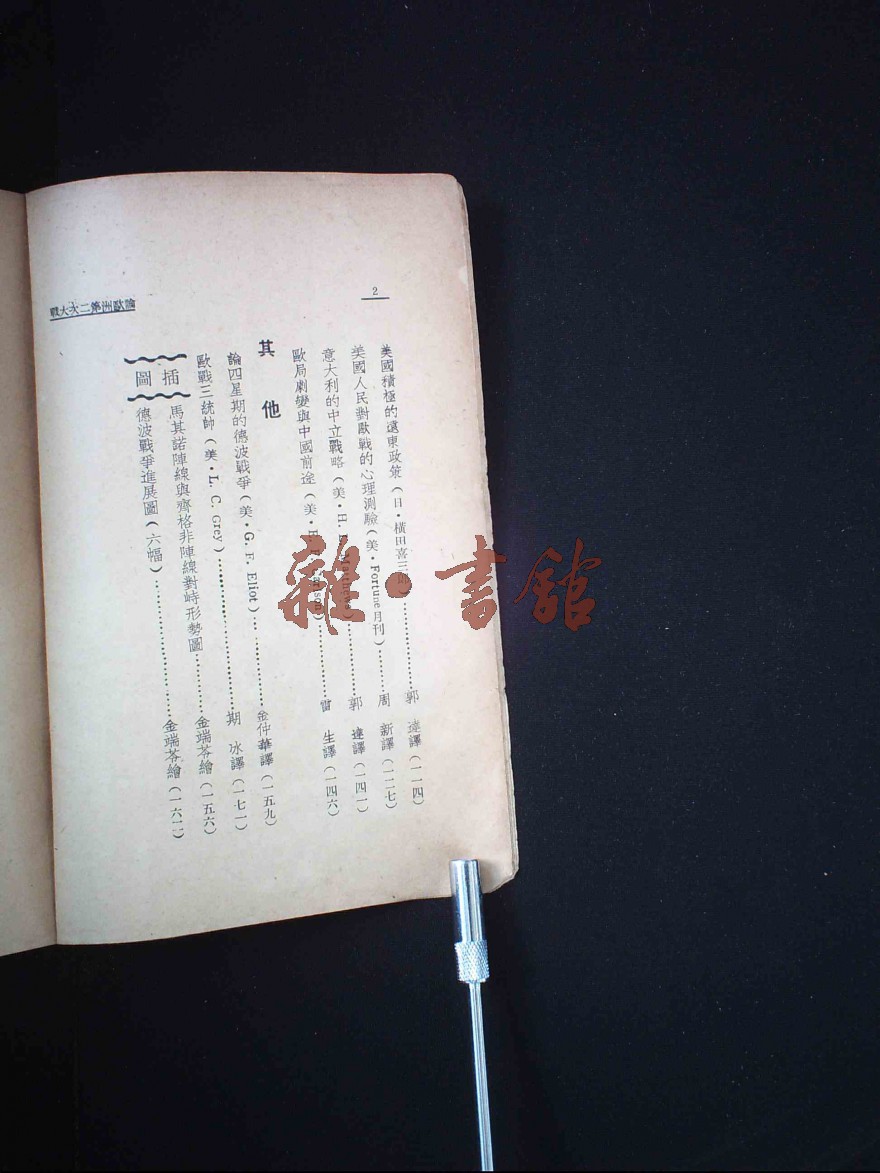 2
論歐洲第二次大戰
美國積極的遠東政策(日·橫田喜三郎)…………郭 達譯(一一四)
美國人民對歐戰的心理測驗(美·Fortune月刊)………周 新譯(一二七)
意大利的中立戰略(美·H. Matthews)…………郭 達譯(一四一)
歐局劇變與中國前途(美·son)…………雷 生譯(一四六)
其他
論四星期的德波戰爭(美·G. F. Eliot)…………金仲華譯(一五九)
歐戰三統帥(美·L. C. Grey)…………期 冰譯(一七一)
插圖
馬其諾陣線與齊格非陣線對峙形勢圖…………金端苓繪(一五六)
德波戰爭進展圖(六幅)…………金端苓繪(一六一)
雜·書館